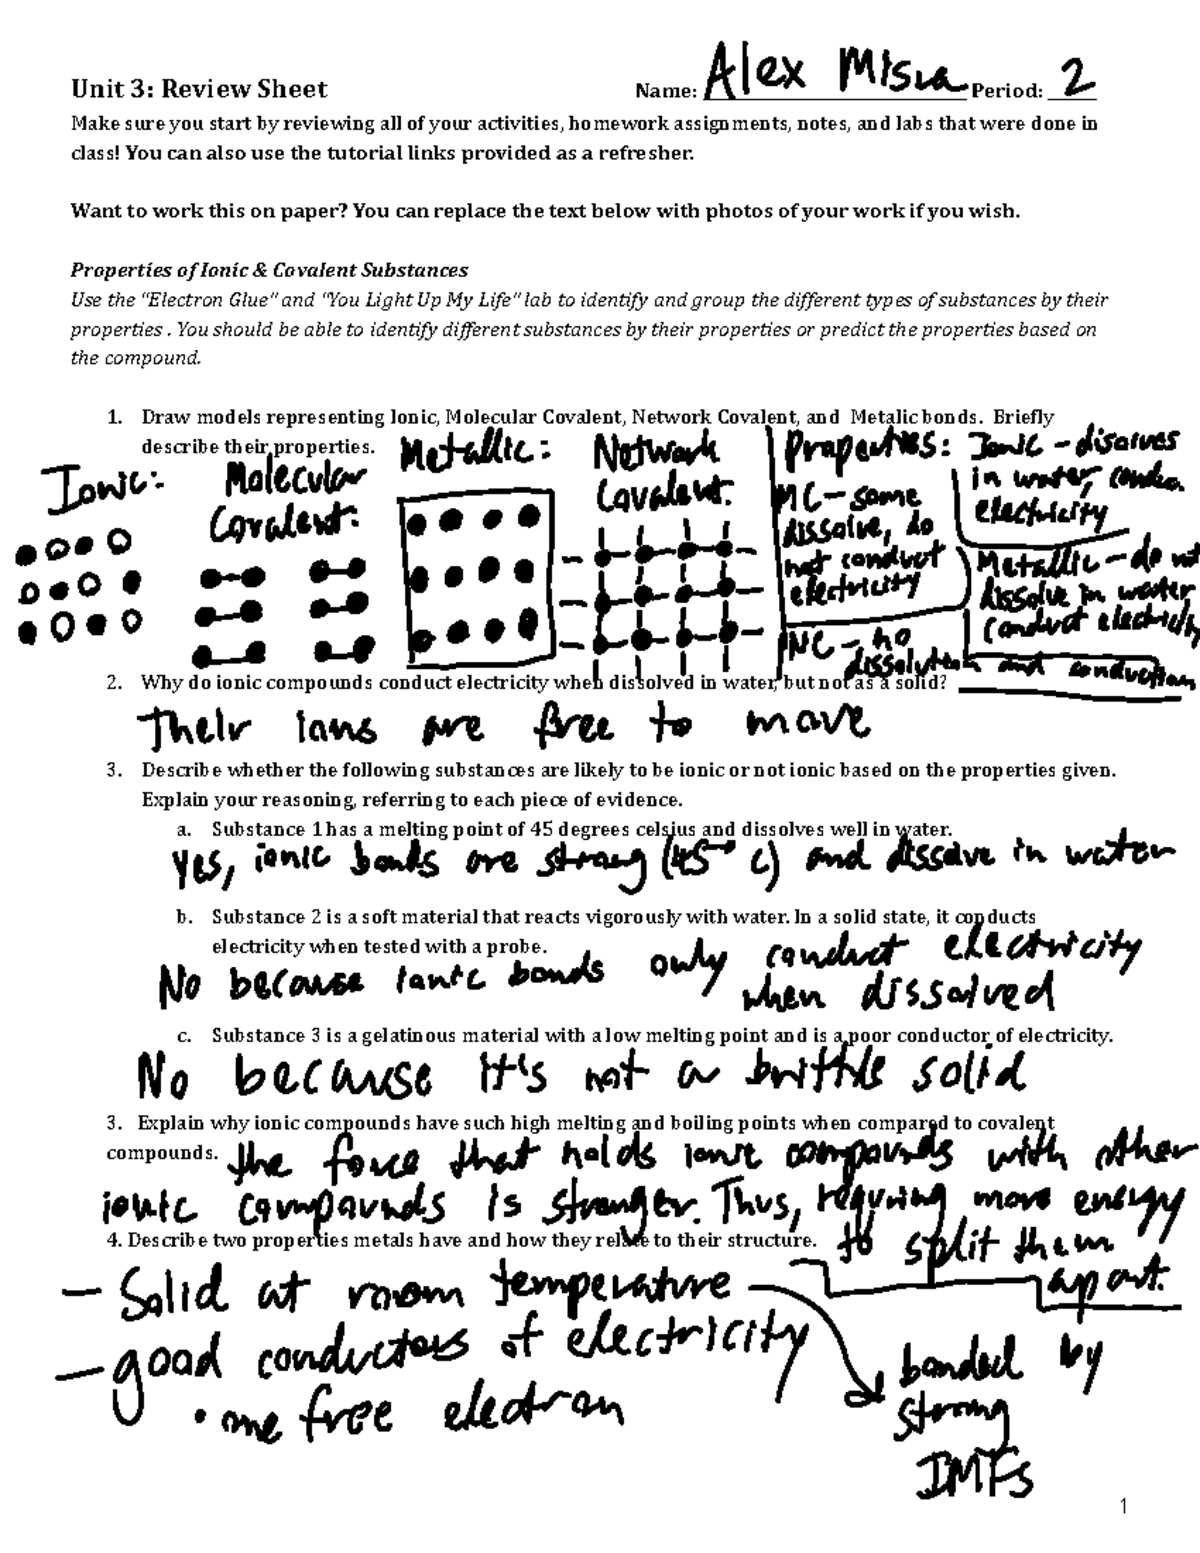 Unit 3: Review Sheet Name: Alex Misra Period: 2
Make sure you start by reviewing all of your activities, homework assignments, notes, and labs that were done in
class! You can also use the tutorial links provided as a refresher.
Want to work this on paper? You can replace the text below with photos of your work if you wish.
Properties of Ionic & Covalent Substances
Use the "Electron Glue" and "You Light Up My Life" lab to identify and group the different types of substances by their
properties . You should be able to identify different substances by their properties or predict the properties based on
the compound.
1. Draw models representing Ionic, Molecular Covalent, Network Covalent, and Metalic bonds. Briefly
describe their properties.
Ionic:
Molecular
Covalent:
Metallic:
Network
Covalent:
Properties:
MC - some
dissolve, do
not conduct
electricity
NC - no
dissolution and conduction
Ionic - disolves
in water,
electricity
Metallic - do not
dissolve in water
conduct electricity
2. Why do ionic compounds conduct electricity when dissolved in water, but not as a solid?
Their ions are free to move
3. Describe whether the following substances are likely to be ionic or not ionic based on the properties given.
Explain your reasoning, referring to each piece of evidence.
a. Substance 1 has a melting point of 45 degrees celsius and dissolves well in water.
Yes, ionic bonds are strong (45° C) and dissolve in water
b. Substance 2 is a soft material that reacts vigorously with water. In a solid state, it conducts
electricity when tested with a probe.
No because ionic bonds only conduct electricity
when dissolved
c. Substance 3 is a gelatinous material with a low melting point and is a poor conductor of electricity.
No because it's not a brittle solid
3. Explain why ionic compounds have such high melting and boiling points when compared to covalent
compounds.
the force that holds ionic compounds with other
ionic compounds is stronger. Thus, requring more energy
to split them
apart.
4. Describe two properties metals have and how they relate to their structure.
- Solid at room temperature
bonded by
strong
IMFs
- good conductors of electricity
• one free electron
1